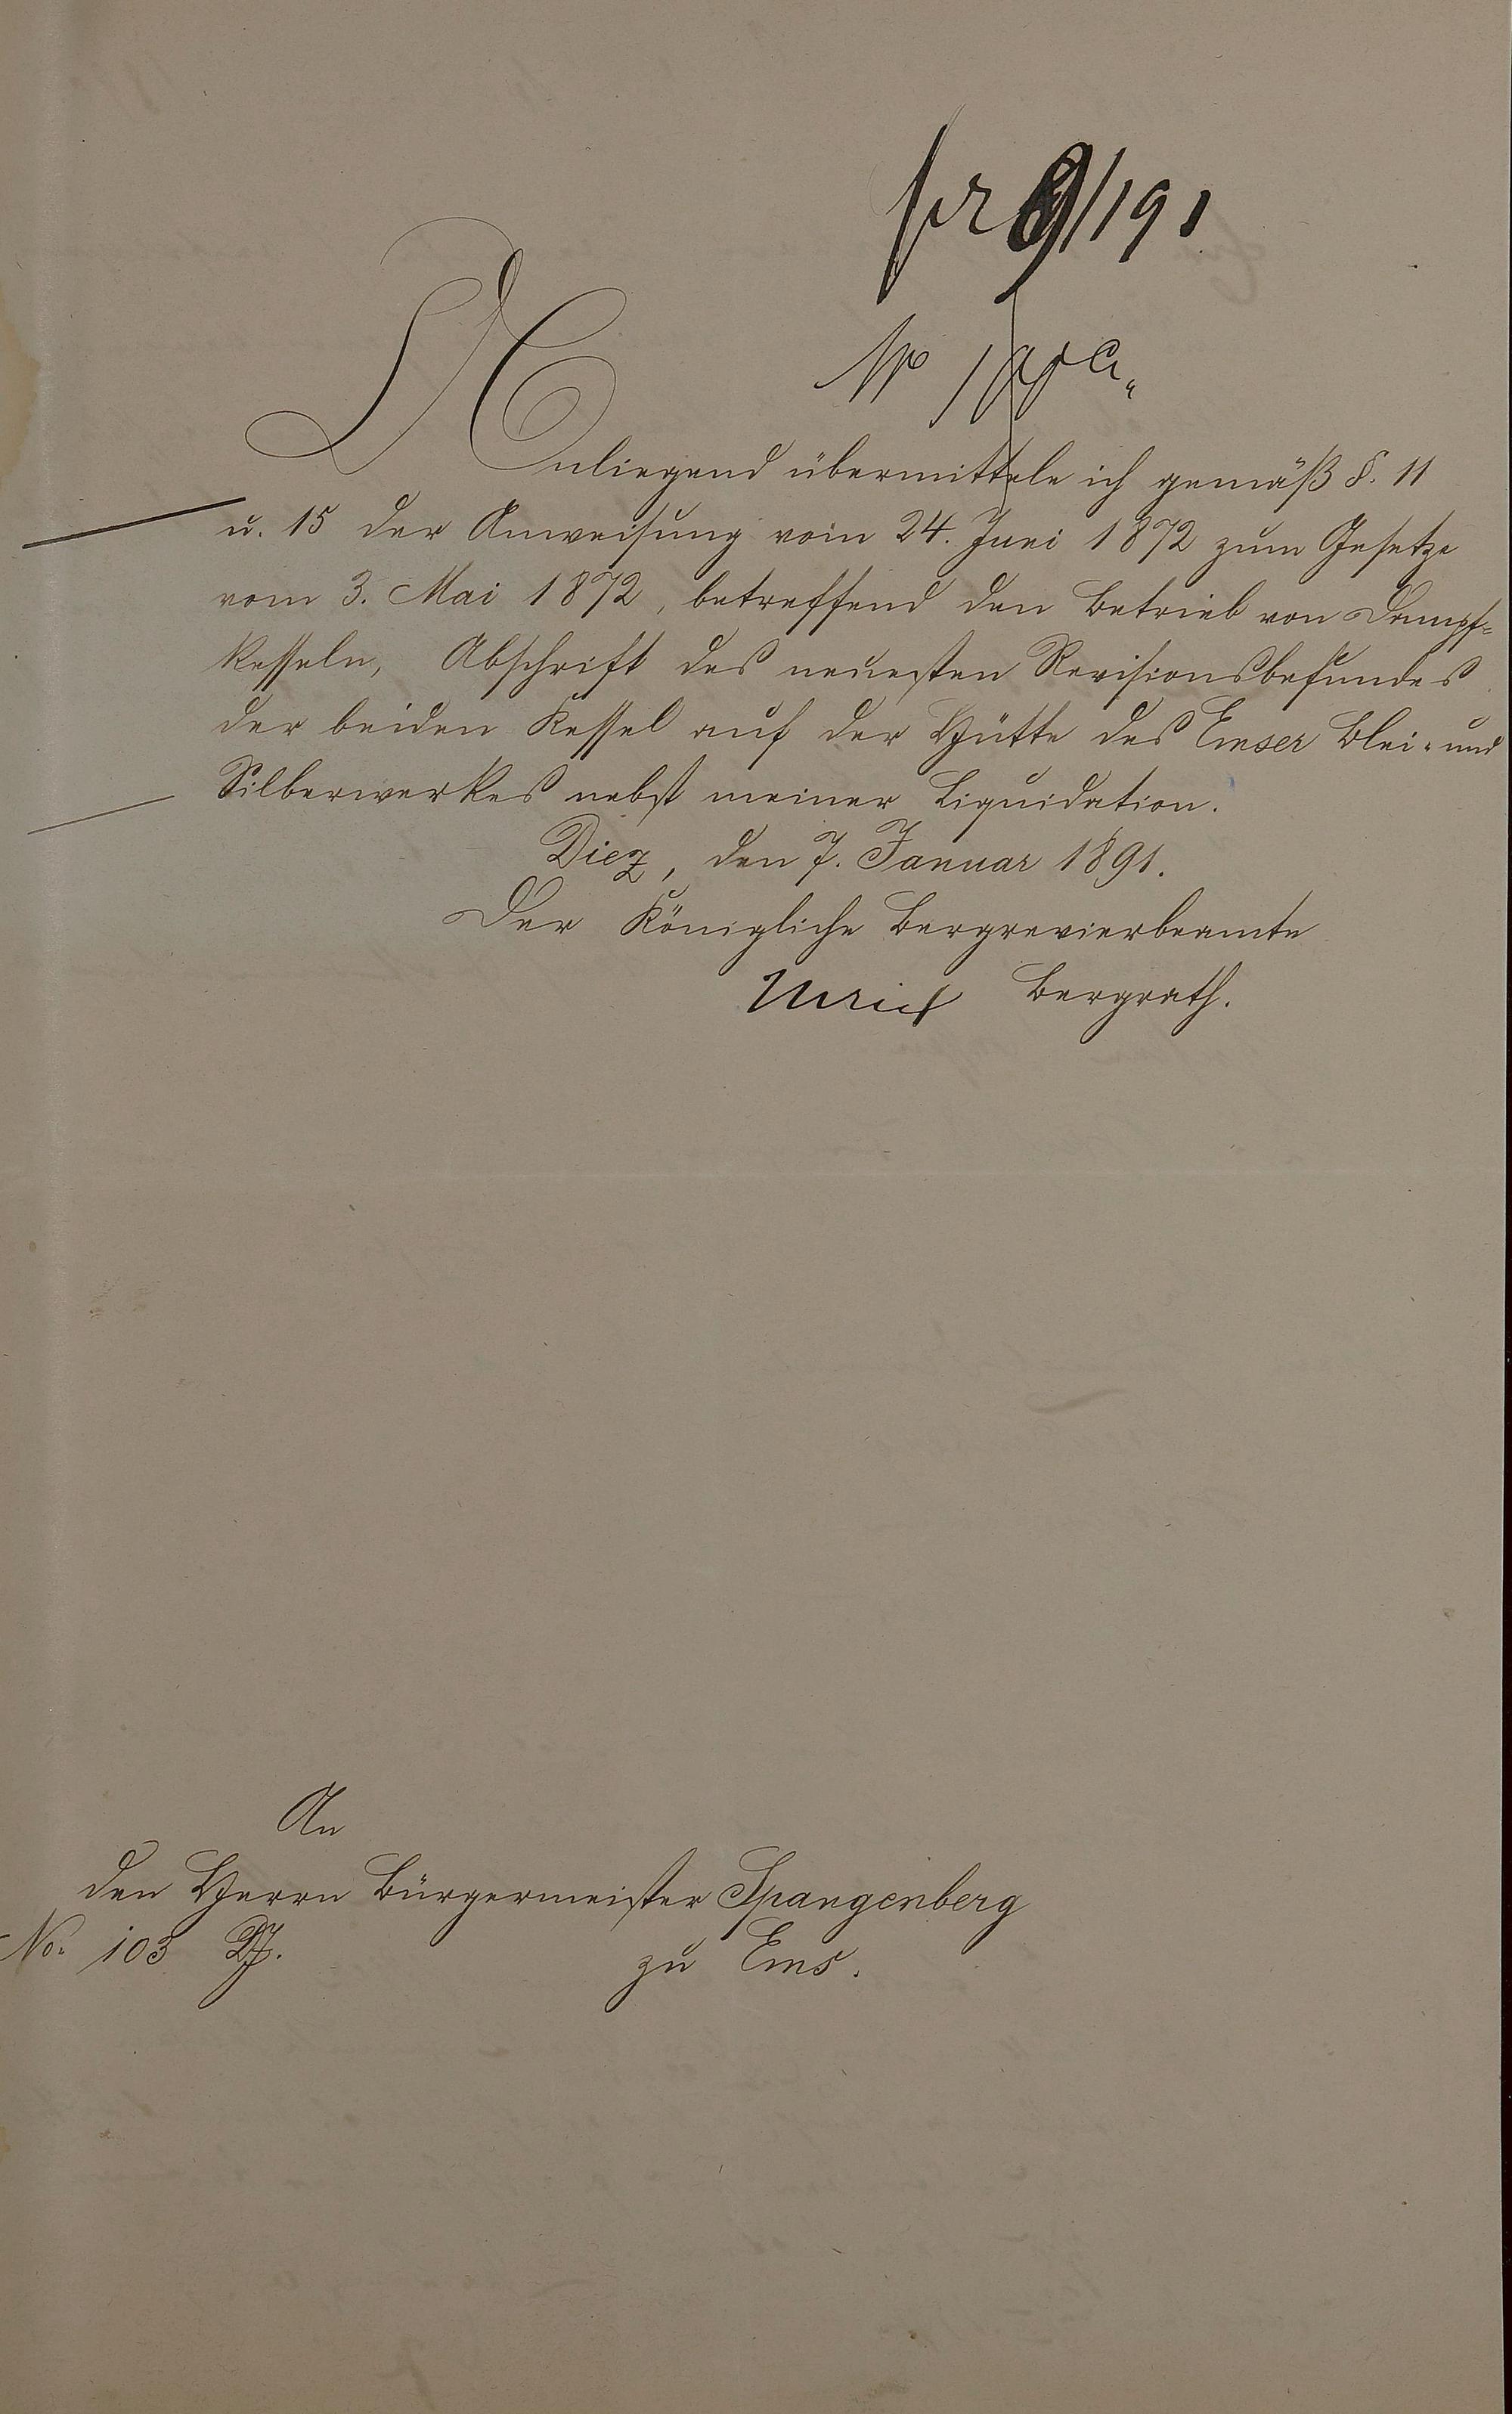 pr 9/1 91
Anliegend übermittele ich gemäß §. 11
u. 15 der Anweisung vom 24. Juni 1872 zum Gesetze
vom 3. Mai 1872, betreffend den Betrieb von Dampf-
kesseln, Abschrift des neuesten Revisionsbefundes
der beiden Kessel auf der Hütte des Emser Blei- und
Silberwerkes nebst meiner Liquidation.
Diez, den 7. Januar 1891.
Der Königliche Bergrevierbeamte
Ulrich Bergrath.
An
den Herrn Bürgermeister Spangenberg
No. 103 zu Ems.